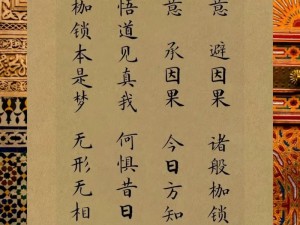 意 避因果 诸般枷锁
意 承因果 今日方知
悟道见真我 何惧昔日
枷锁本是梦 无形无相